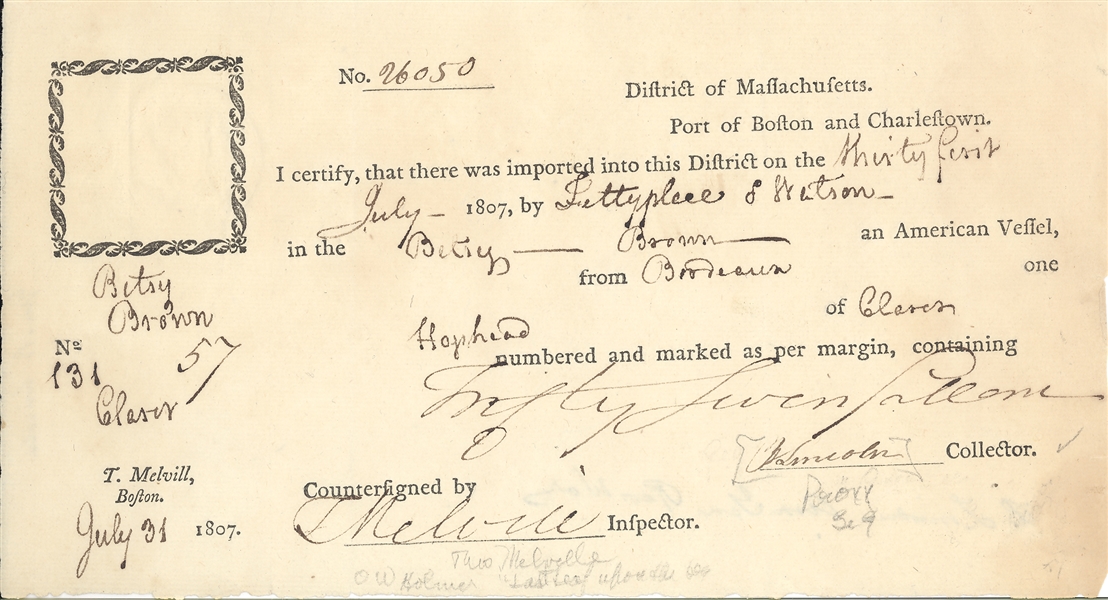 No. 26050
Diſtrict of Maſſachuſetts.
Port of Boſton and Charleſtown.
I certify, that there was imported into this Diſtrict on the thirty first
July 1807, by Fettyplace & Watson
in the Betsy Brown an American Veſſel,
from Bordeaux one
Hogshead of Claret
numbered and marked as per margin, containing
Fifty Seven Gallons
Lincoln Collector.
Counterſigned by
T Melvill Inſpector.
Betsy
Brown
No
131 57
Claret
T. Melvill,
Boſton.
July 31 1807.
Thos Melville
O W Holmes Last leaf upon the